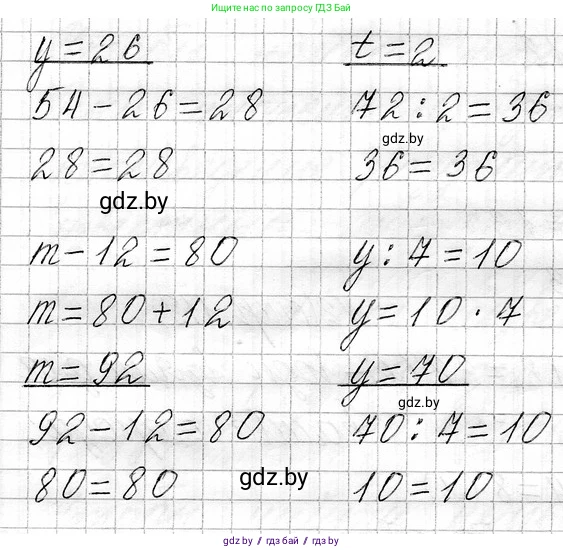 Ищите нас по запросу ГДЗ Бай
y = 26
54 - 26 = 28
28 = 28
gdz.by
m - 12 = 80
m = 80 + 12
m = 92
92 - 12 = 80
80 = 80
gdz.by
t = 2
72 : 2 = 36
gdz.by
36 = 36
y : 7 = 10
y = 10 · 7
y = 70
gdz.by
70 : 7 = 10
10 = 10
gdz.by / гдз бай / gdz.by